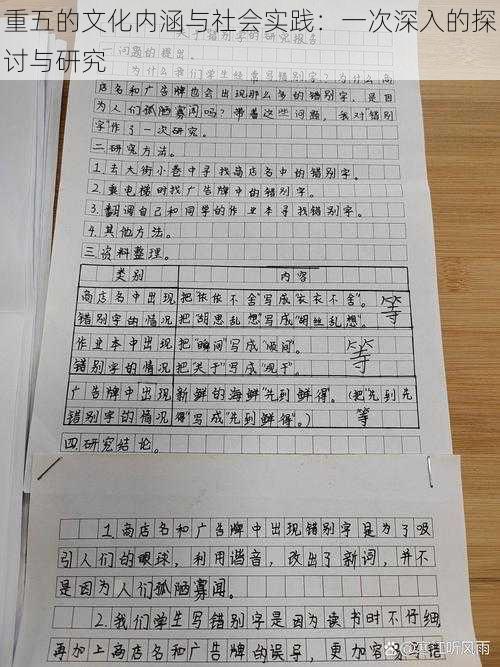 重五的文化内涵与社会实践：一次深入的探
讨与研究
关于错别字的研究报告
一.问题的提出。
为什么我们学生经常写错别字？为什么商
店名和广告牌也会出现那么多的错别字，是因
为人们孤陋寡闻吗？带着这些问题，我对错别
字作了一次研究。
二.研究方法。
1.去大街小巷中寻找商店名中的错别字。
2.乘电梯时找广告牌中的错别字。
3.翻阅自己和同学的作业本寻找错别字。
4.其他方法。
三.资料整理。
类别 内容
商店名中出现 把"依依不舍"写成"衣衣不舍"。
错别字的情况 把"胡思乱想"写成"胡丝乱想"。 等
作业本中出现 把"瞬间"写成"顺间"。
错别字的情况 把"关于"写成"观于"。 等
广告牌中出现 新鲜的海鲜"先到鲜得"。(把"先到先
错别字的情况 得"写成"先到鲜得"。) 等
四.研究结论。
1.商店名和广告牌中出现错别字是为了吸
引人们的眼球，利用谐音，改出了新词，并不
是因为人们孤陋寡闻。
2.我们学生写错别字是因为读书时不仔细，
再加上商店名和广告牌的误导，更加容易
听风雨